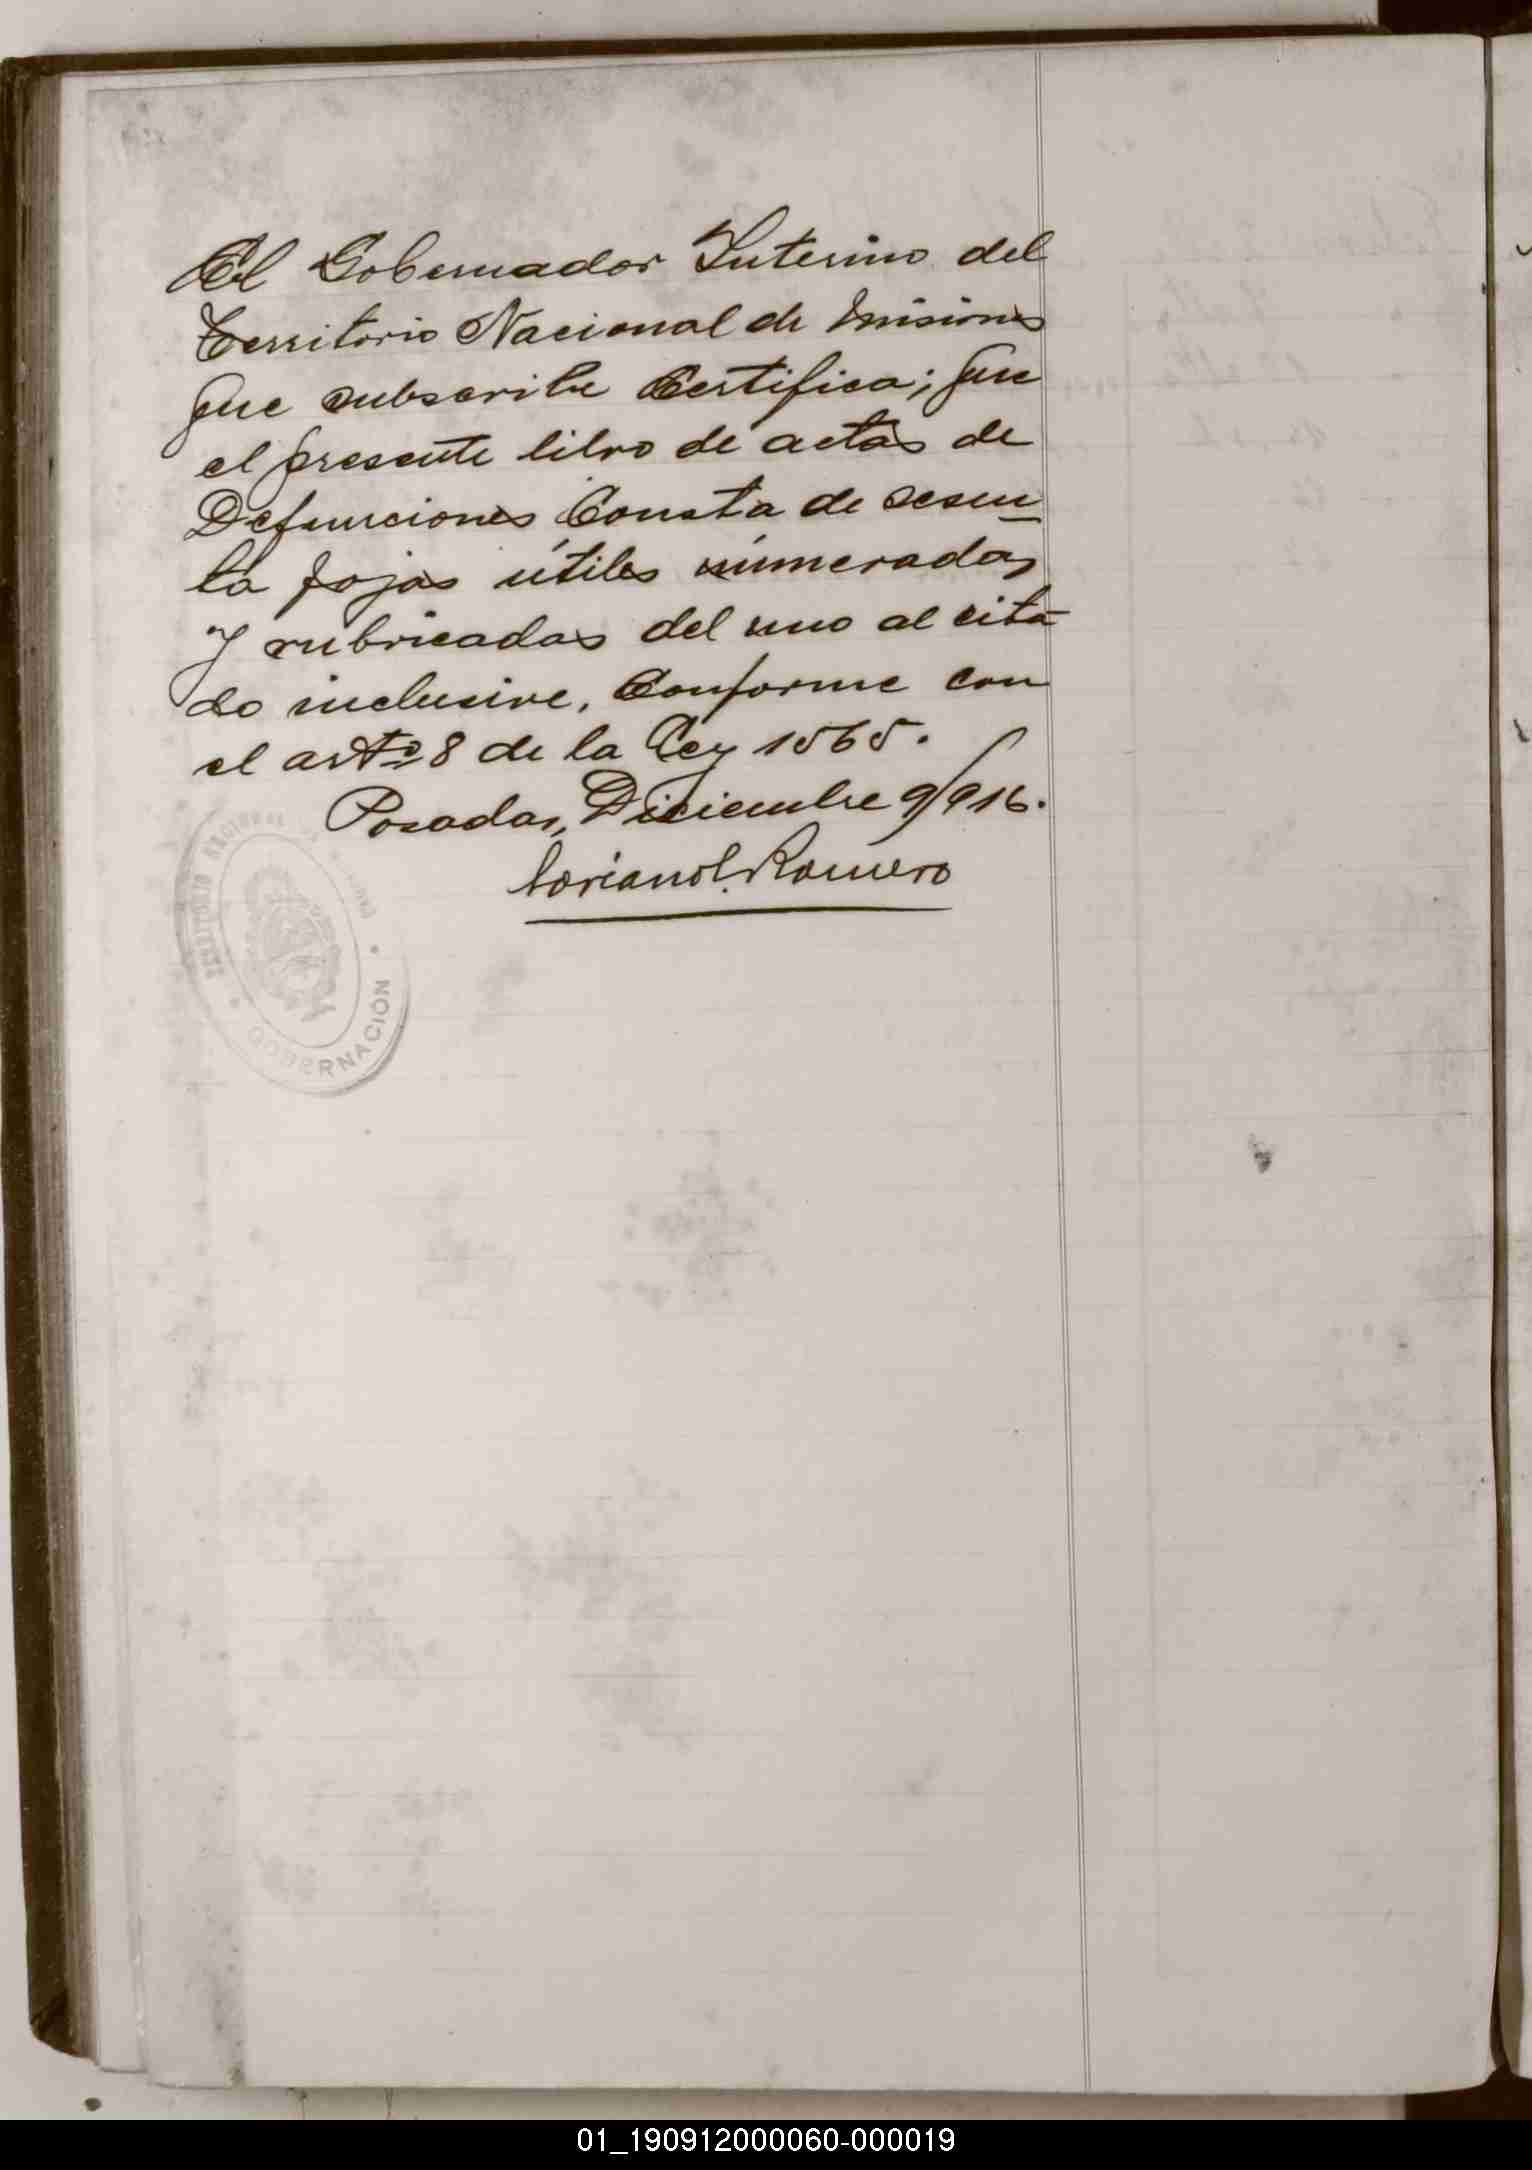 El Gobernador Interino del
Territorio Nacional de Misiones
que subscribe Certifica; que
el presente libro de actas de
Defunciones Consta de sesen
ta fojas útiles númeradas
y rubricadas del uno al cita
do inclusive, Conforme con
el artº 8 de la Ley 1565.
Posadas, Diciembre 9/916.
Romero
TERRITORIO NACIONAL
GOBERNACIÓN
01_190912000060-000019